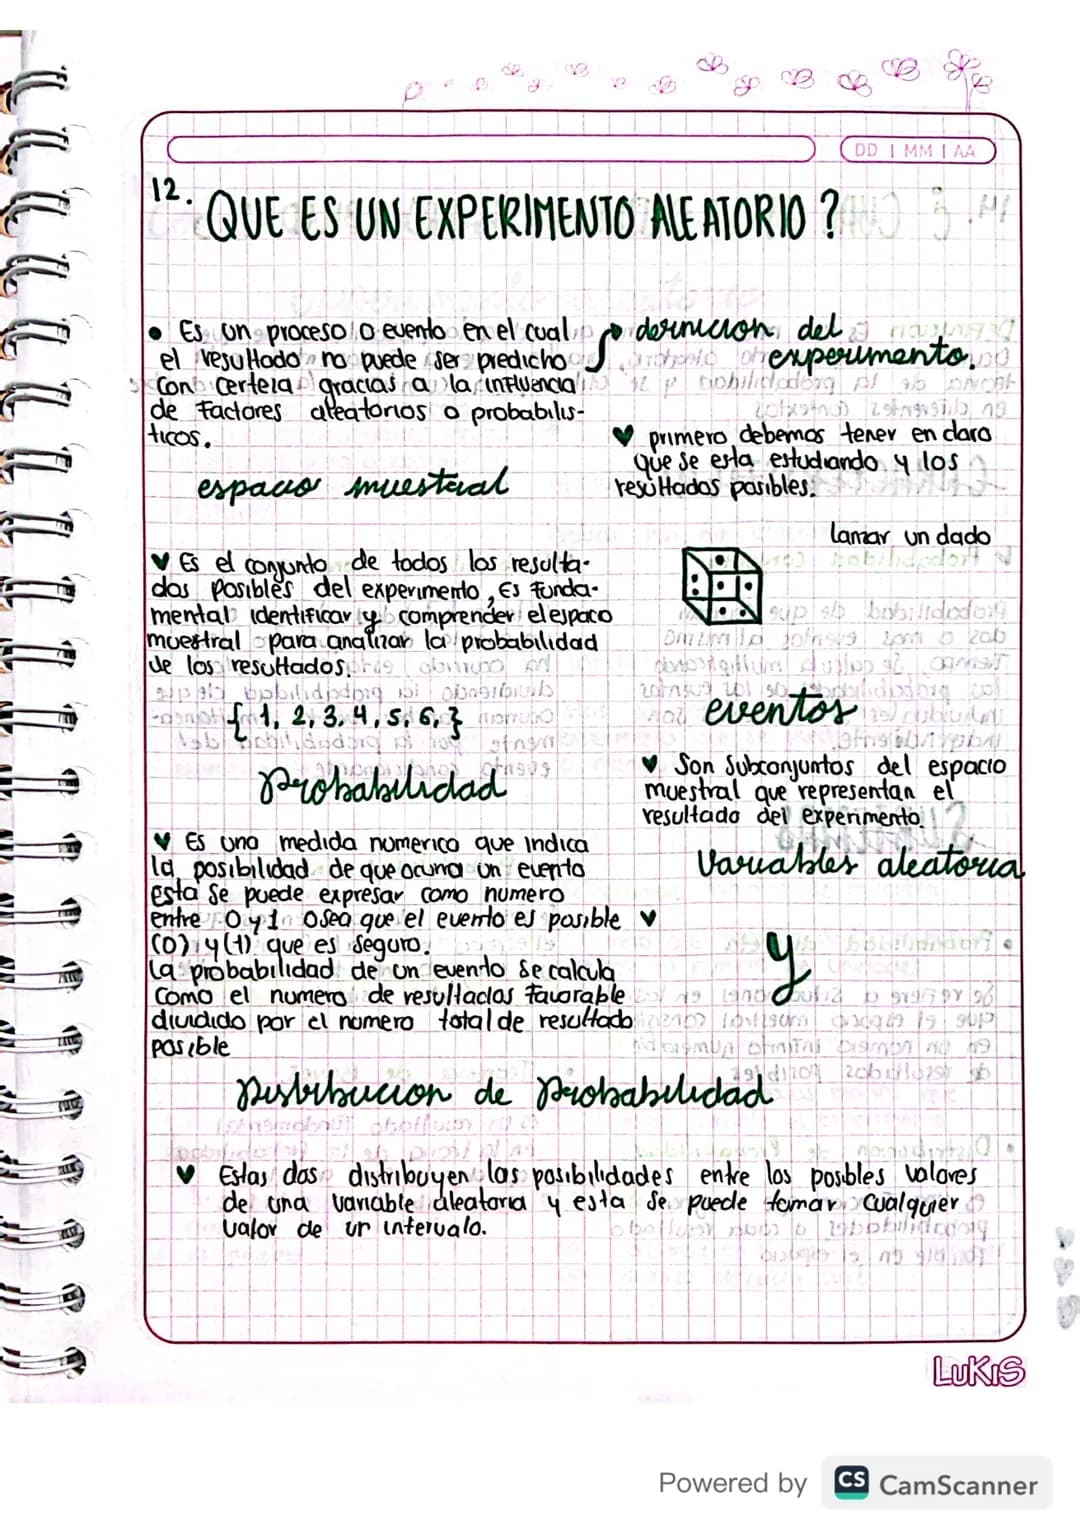 DD | MM | AA
12. QUE ES UN EXPERIMENTO ALEATORIO?
• Es un proceso o evento en el cual
el resultado no puede ser predicho
con certeza gracias a la influencia
de factores aleatorios o probabilis-
ticos.
definicion del
experimento.
♥ primero debemos tener en claro
que se esta estudiando y los
resultados posibles.
lanzar un dado
espacio muestral
♥ Es el conjunto de todos los resulta-
dos posibles del experimento, Es funda-
mental identificar y comprender el espaco
muestral para analizar la probabilidad
de los resultados.
{1, 2, 3, 4, 5, 6, }
eventos
♥ Son subconjuntos del espacio
muestral que representan el
resultado del experimento.
Probabilidad
♥ Es una medida numerica que indica
la posibilidad de que ocurra un evento
esta se puede expresar como numero
entre 0 y 1 osea que el evento es posible
(0) y (1) que es seguro.
La probabilidad de un evento se calcula
como el numero de resultados favorable
dividido por el numero total de resultado
posible
Variables aleatoria
♥
y
Distribucion de Probabilidad
♥ Estas dos distribuyen las posibilidades entre los posbles valores
de una variable aleatoria y esta se puede tomar cualquier
valor de un intervalo.
LUKIS
Powered by CS CamScanner